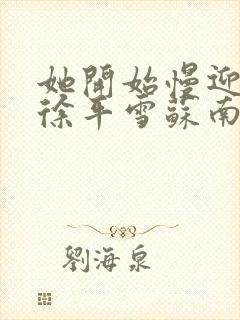 她開始慢迎
徐平雪蘇南
劉海泉